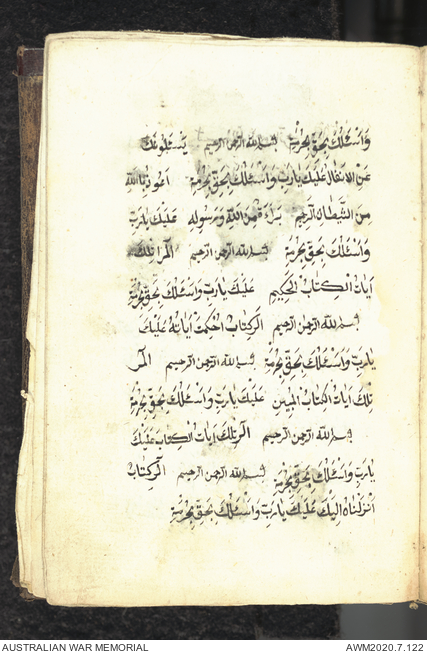 وَاَسْئَلُكَ بِحَقِّ بِحُرْمَةِ بسم الله الرحمن الرحيم يَسْئَلُونَكَ
عَنِ الاَنْفَالِ عَلَيْكَ يَارَبِّ وَاَسْئَلُكَ بِحَقِّ بِحُرْمَةِ اَعُوذُ بِاللهِ
مِنَ الشَّيْطَانِ الرَّجِيمِ بَرَآءَةٌ مِنَ اللهِ وَرَسُولِهِ عَلَيْكَ يَارَبِّ
وَاَسْئَلُكَ بِحَقِّ بِحُرْمَةِ بسم الله الرحمن الرحيم الٓر تِلْكَ
اٰيَاتُ الْكِتَابِ الْحَكِيمِ عَلَيْكَ يَارَبِّ وَاَسْئَلُكَ بِحَقِّ بِحُرْمَةِ
بسم الله الرحمن الرحيم الٓر كِتَابٌ اُحْكِمَتْ اٰيَاتُهُ عَلَيْكَ
يَارَبِّ وَاَسْئَلُكَ بِحَقِّ بِحُرْمَةِ بسم الله الرحمن الرحيم الٓر
تِلْكَ اٰيَاتُ الْكِتَابِ الْمُبِينِ عَلَيْكَ يَارَبِّ وَاَسْئَلُكَ بِحَقِّ بِحُرْمَةِ
بسم الله الرحمن الرحيم الٓمٓر تِلْكَ اٰيَاتُ الْكِتَابِ عَلَيْكَ
يَارَبِّ وَاَسْئَلُكَ بِحَقِّ بِحُرْمَةِ بسم الله الرحمن الرحيم الٓر كِتَابٌ
اَنْزَلْنَاهُ اِلَيْكَ عَلَيْكَ يَارَبِّ وَاَسْئَلُكَ بِحَقِّ بِحُرْمَةِ
AUSTRALIAN WAR MEMORIAL AWM2020.7.122